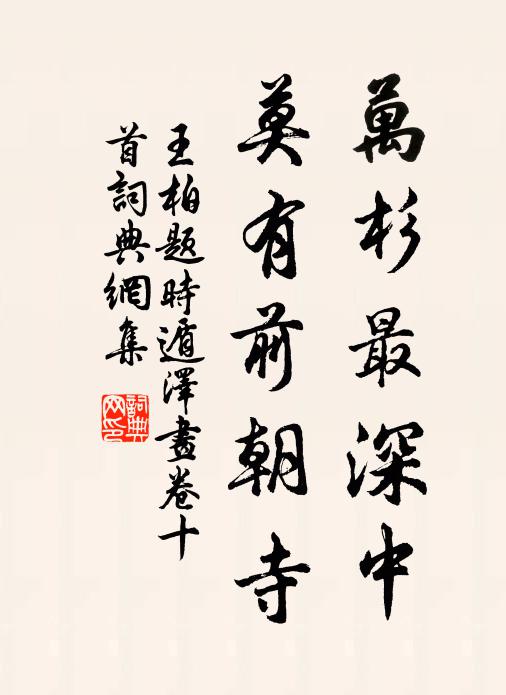 萬杉最深中
莫有前朝寺
王柏題時遁澤畫卷十
首詞典網集
詞典
网印